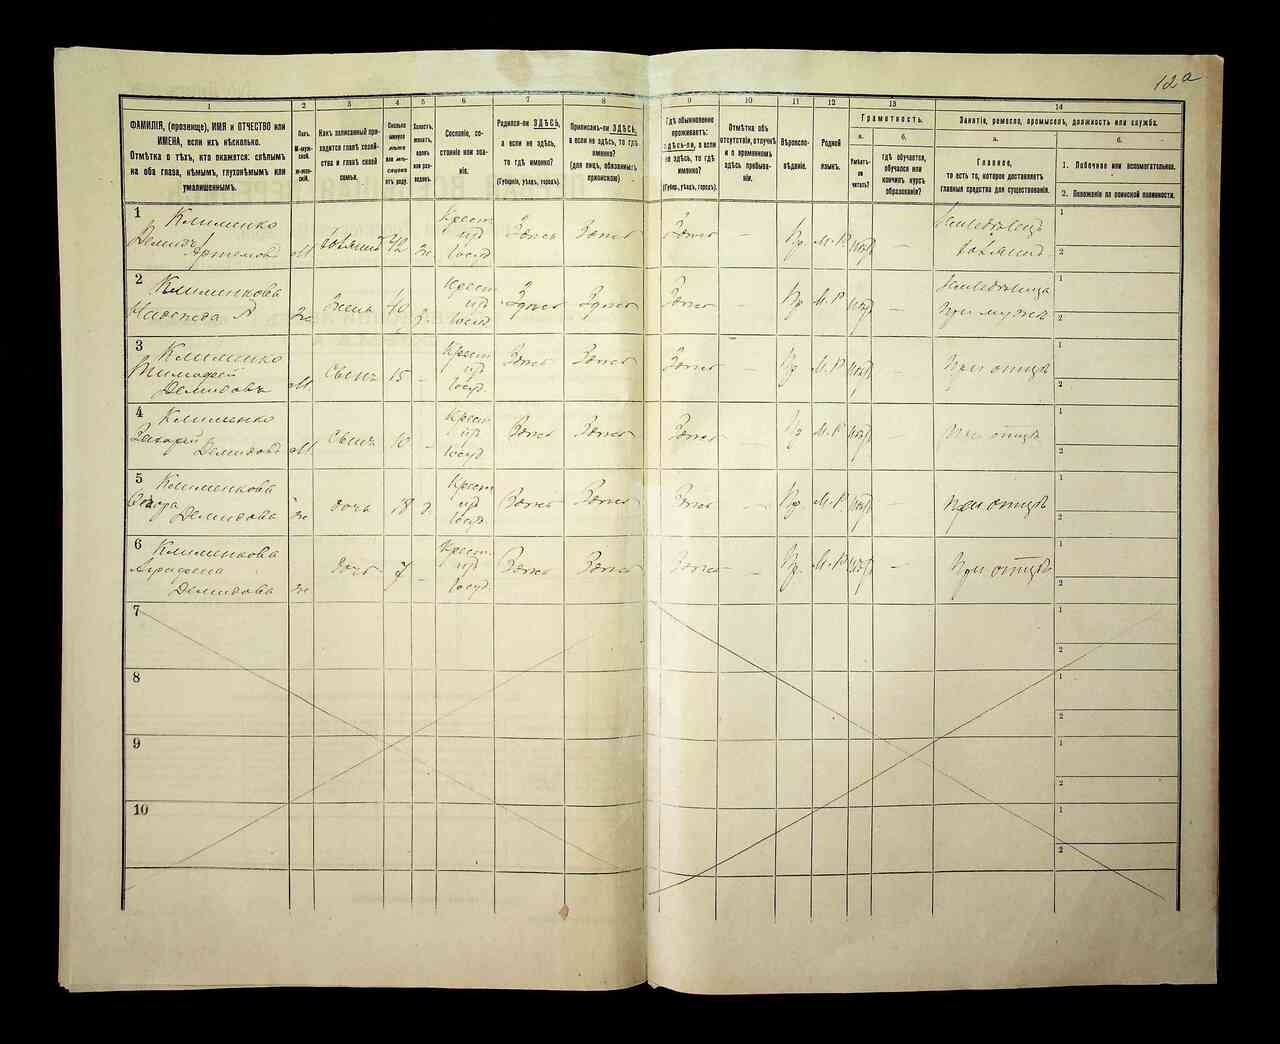 12а
1
2
3
4
5
6
7
8
9
10
11
12
13
14
ФАМИЛІЯ, (прозвище), ИМЯ и ОТЧЕСТВО или
ИМЕНА, если ихъ нѣсколько.
Отмѣтка о тѣхъ, кто окажется: слѣпымъ
на оба глаза, нѣмымъ, глухонѣмымъ или
умалишеннымъ.
Полъ.
М-муж-
ской.
Ж-жен-
скій.
Какъ записанный при-
ходится главѣ хозяй-
ства и главѣ своей
семьи.
Сколько
минуло
лѣтъ
или мѣ-
сяцевъ
отъ роду.
Холостъ,
женатъ,
вдовъ
или раз-
веденъ.
Сословіе, со-
стояніе или зва-
ніе.
Родился-ли ЗДѢСЬ,
а если не здѣсь,
то гдѣ именно?
(Губернія, уѣздъ, городъ).
Приписанъ-ли ЗДѢСЬ,
а если не здѣсь, то гдѣ
именно?
(для лицъ, обязанныхъ
припискою)
Гдѣ обыкновенно
проживаетъ:
здѣсь-ли, а если
не здѣсь, то гдѣ
именно?
(Губер., уѣздъ, городъ).
Отмѣтка объ
отсутствіи, отлучкѣ
и о временномъ
здѣсь пребыва-
ніи.
Вѣроиспо-
вѣданіе.
Родной
языкъ.
Грамотность.
а.
Умѣетъ-
ли
читать?
б.
гдѣ обучается,
обучался или
кончилъ курсъ
образованія?
Занятіе, ремесло, промыселъ, должность или служба.
а.
Главное,
то есть то, которое доставляетъ
главныя средства для существованія.
б.
1. Побочное или вспомогательное.
2. Положеніе по воинской повинности.
1 Клименко
Демидъ
Артемовъ М хозяинъ 42 ж Крест
изъ
Госуд. Здѣсь Здѣсь Здѣсь — Пр. М-Р нѣтъ — Земледѣлецъ
хозяинъ 1
2
2 Клименкова
Надежда А Ж Жена 40 З. Крест
изъ
Госуд. Здѣсь Здѣсь Здѣсь — Пр М.Р нѣтъ — Земледѣлица
При мужѣ 1
2
3 Клименко
Тимофей
Демидовъ М Сынъ 15 - Крест
изъ
Госуд. Здѣсь Здѣсь Здѣсь — Пр М.Р нѣтъ — При отцѣ 1
2
4 Клименко
Захарій
Демидовъ М Сынъ 10 - Крест
изъ
Госуд. Здѣсь Здѣсь Здѣсь — Пр М.Р нѣтъ — При отцѣ 1
2
5 Клименкова
Демидова Ж дочь 18 д Крест
изъ
Госуд. Здѣсь Здѣсь Здѣсь — Пр. М.Р. нѣтъ — При отцѣ 1
2
6 Клименкова
Агрифена
Демидова Ж дочь 7 - Крест
изъ
Госуд. Здѣсь Здѣсь Здѣсь — Пр. М.Р нѣтъ — При отцѣ 1
2
7 1
2
8 1
2
9 1
2
10 1
2